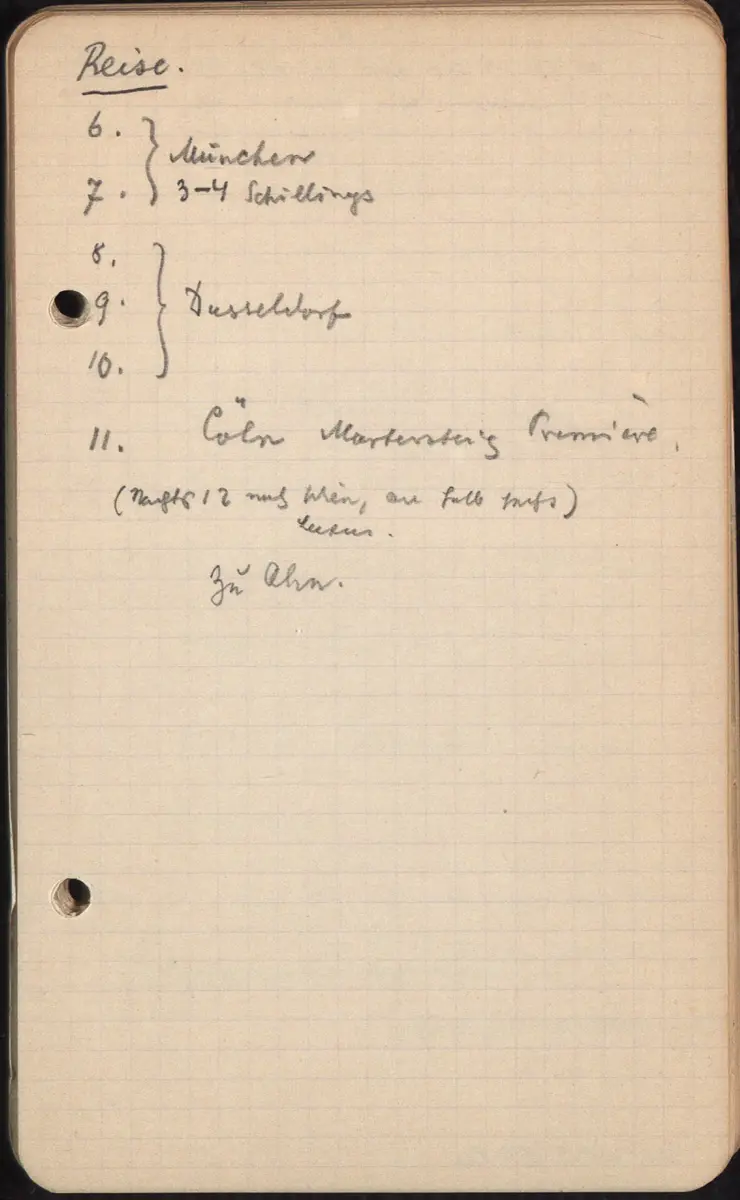 Reise.
6.
München
7. 3-4 Schillings
8.
9. Düsseldorf
10.
11. Cöln Martersteig Première.
(Nachts 12 nach Wien, an halb sechs)
Luxus.
Zu Ahn.